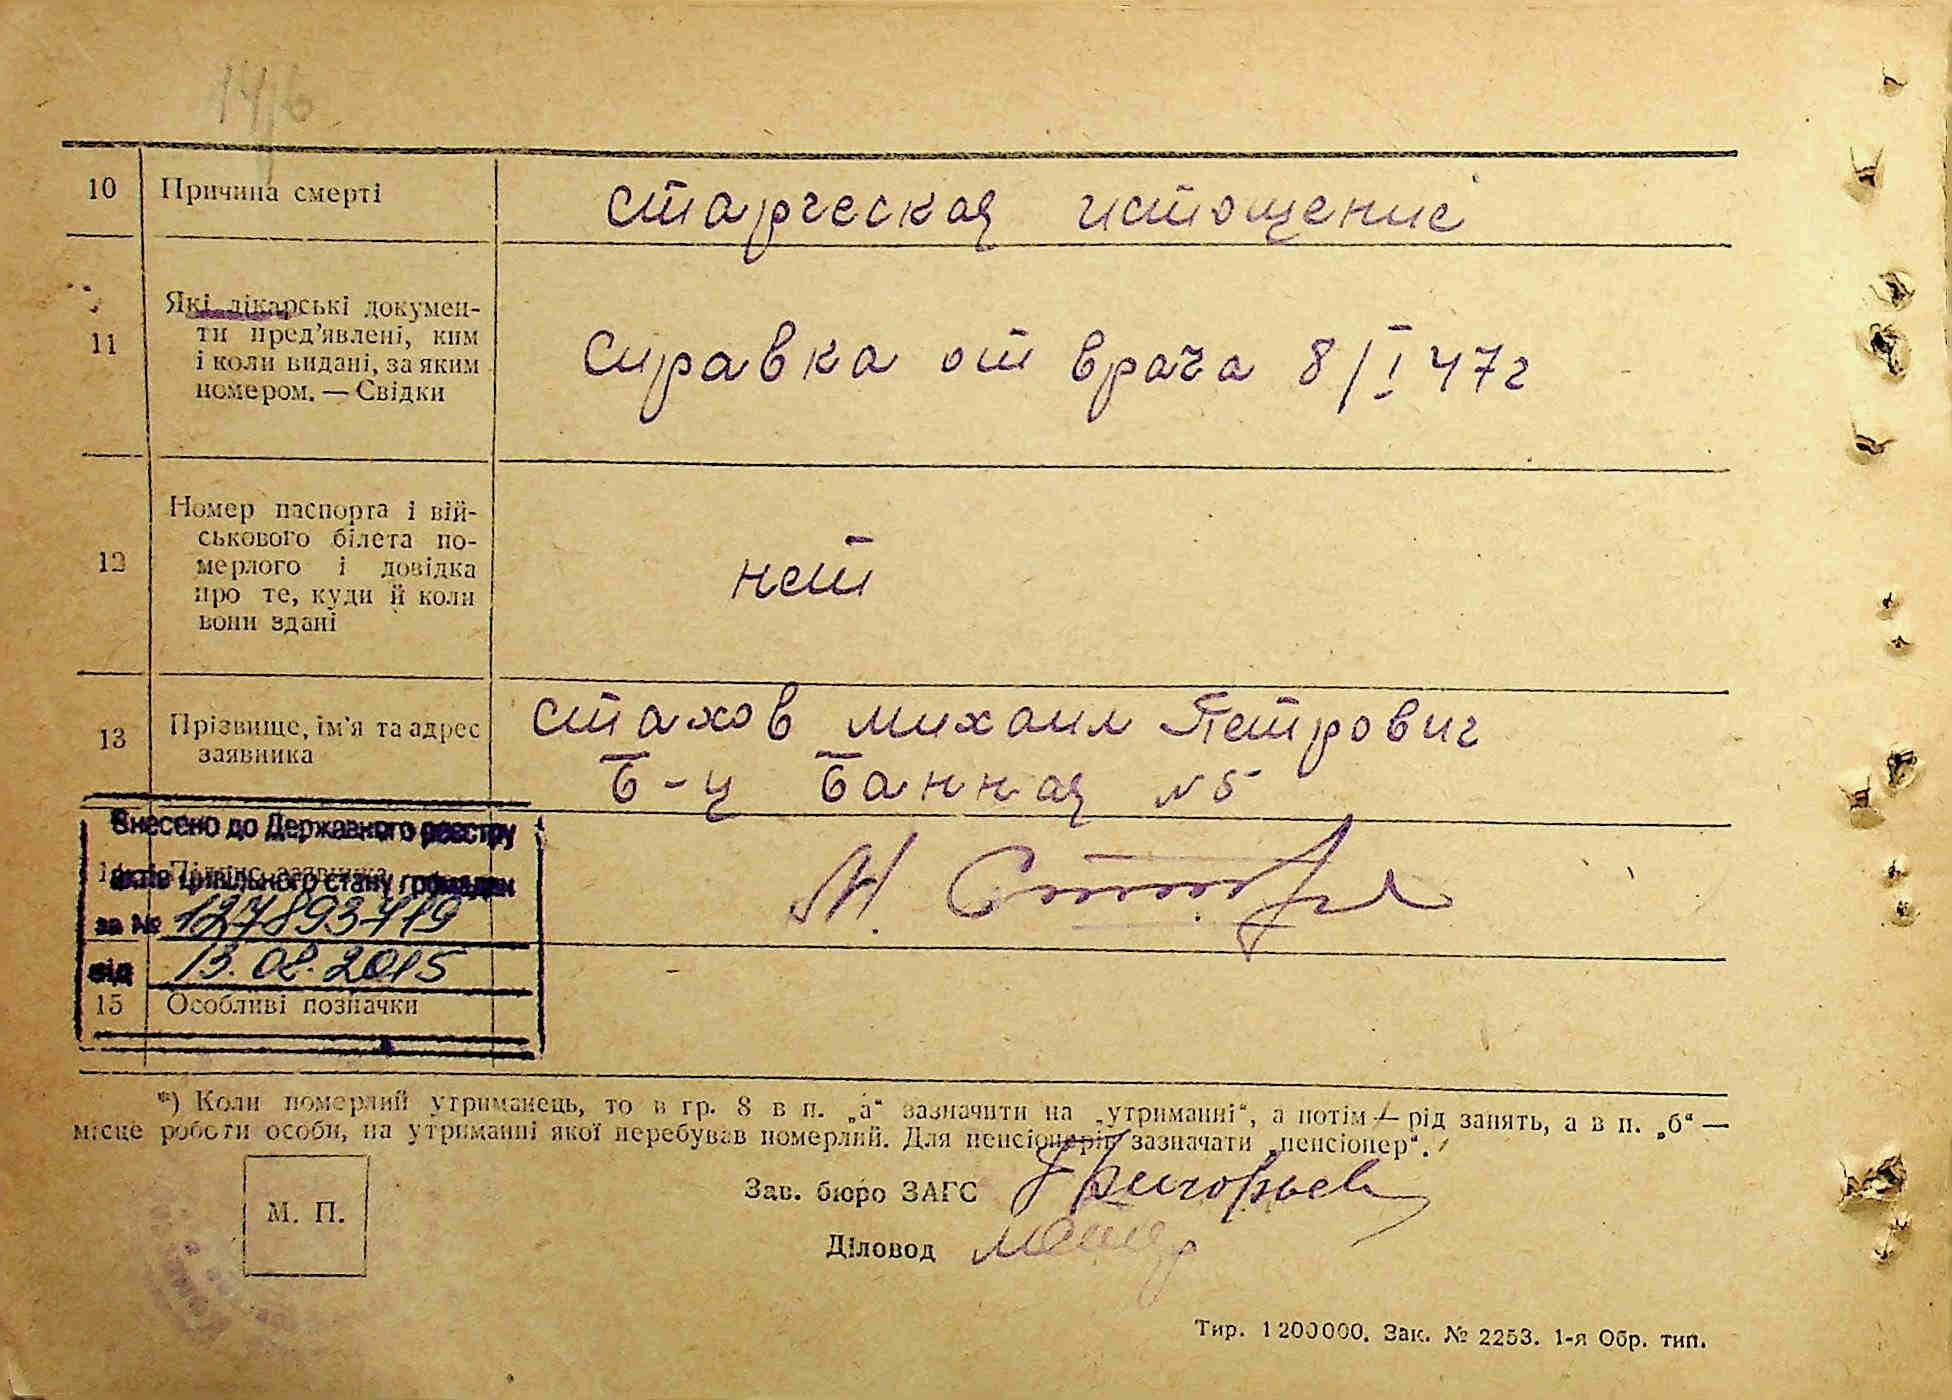 14/6
10 Причина смерті старческая истощение
11 Які лікарські докумен-
ти пред’явлені, ким
і коли видані, за яким
номером. — Свідки
Справка от врача 8/I 47г
12 Номер паспорта і вій-
ськового білета по-
мерлого і довідка
про те, куди й коли
вони здані
нет
13 Прізвище, ім’я та адрес
заявника
Стахов Михаил Петрович
Б-ц Банная №5
Внесено до Державного реєстру
14 Підпис заявника
актів цивільного стану громадян
за № 127893719
від 13.02.2015
15 Особливі позначки
*) Коли померлий утриманець, то в гр. 8 в п. „а“ зазначити на „утриманні“, а потім — рід занять, а в п. „б“ —
місце роботи особи, на утриманні якої перебував померлий. Для пенсіонерів зазначати „пенсіонер“.
М. П.
Зав. бюро ЗАГС Григорьев
Діловод
Тир. 1200000. Зак. № 2253. 1-я Обр. тип.